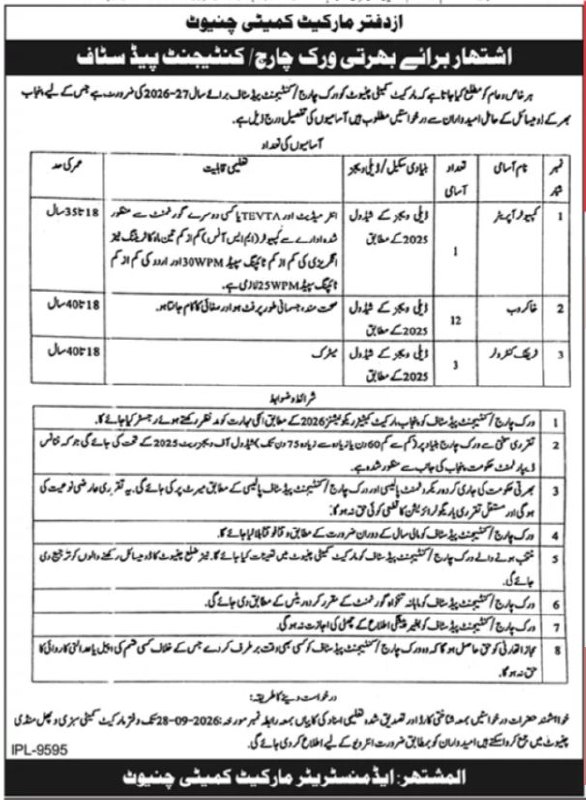 از دفتر مارکیٹ کمیٹی چنیوٹ
اشتہار برائے بھرتی ورک چارج / کنٹیجنٹ پیڈ سٹاف
ہر خاص و عام کو مطلع کیا جاتا ہے کہ مارکیٹ کمیٹی چنیوٹ کو ورک چارج / کنٹیجنٹ پیڈ سٹاف برائے سال 27-2026 کی ضرورت ہے جس کے لیے پنجاب
بھر کے ڈومیسائل کے حامل امیدواران سے درخواستیں مطلوب ہیں آسامیوں کی تفصیل درج ذیل ہے۔
آسامیوں کی تعداد
نمبر شمار نام آسامی تعداد آسامی بنیادی سکیل / ڈیلی ویجز تعلیمی قابلیت عمر کی حد
1 کمپیوٹر آپریٹر 1 ڈیلی ویجز کے شیڈول 2025 کے مطابق انٹر میڈیٹ اور TEVTA یا کسی دوسرے گورنمنٹ سے منظور 18 تا 35 سال
شدہ ادارے سے کمپیوٹر (ایم ایس آفس) کم از کم تین ماہ کا ٹریننگ نیز
انگریزی کی کم از کم ٹائپنگ سپیڈ 30WPM اور اردو کی کم از کم
ٹائپنگ سپیڈ 25WPM لازی ہے۔
2 خاکروب 12 ڈیلی ویجز کے شیڈول 2025 کے مطابق صحت مند، جسمانی طور پر فٹ ہو اور صفائی کا کام جانتا ہو۔ 18 تا 40 سال
3 ٹریفک کنٹرولر 3 ڈیلی ویجز کے شیڈول 2025 کے مطابق میٹرک 18 تا 40 سال
شرائط و ضوابط
1 ورک چارج / کنٹیجنٹ پیڈ سٹاف کو پنجاب مارکیٹ کمیٹیز ریگولیشنز 2026 کے مطابق انکی مہارت کو مد نظر رکھتے ہوئے رجسٹر کیا جائے گا۔
2 تقرری سختی سے ورک چارج بنیاد پر (کم سے کم 60 دن یا زیادہ سے زیادہ 75 دن تک) شیڈول آف ویجز ریٹ 2025 کے تحت کی جائے گی جو کہ فنانس
ڈیپارٹمنٹ حکومت پنجاب کی جانب سے منظور شدہ ہے۔
3 بھرتی حکومت کی جاری کردہ ریکروٹمنٹ پالیسی اور ورک چارج / کنٹیجنٹ پیڈ سٹاف پالیسی کے مطابق میرٹ پر کی جائے گی۔ یہ تقرری عارضی نوعیت کی
ہوگی اور مستقل تقرری یا ریگولرائزیشن کا قطعی کوئی حق نہ ہوگا۔
4 ورک چارج / کنٹیجنٹ پیڈ سٹاف کو مالی سال کے دوران ضرورت کے مطابق وقتاً فوقتاً بلایا جائے گا۔
5 منتخب ہونے والے ورک چارج / کنٹیجنٹ پیڈ سٹاف کو مارکیٹ کمیٹی چنیوٹ میں تعینات کیا جائے گا۔ نیز ضلع چنیوٹ کا ڈومیسائل رکھنے والوں کو ترجیح دی
جائے گی۔
6 ورک چارج / کنٹیجنٹ پیڈ سٹاف کو ماہانہ تنخواہ گورنمنٹ کے مقرر کردہ ریٹس کے مطابق دی جائے گی۔
7 ورک چارج / کنٹیجنٹ پیڈ سٹاف کو بغیر پیشگی اطلاع کے چھٹی کی اجازت نہ ہوگی۔
8 مجاز اتھارٹی کو حق حاصل ہو گا کہ وہ ورک چارج / کنٹیجنٹ پیڈ سٹاف کو کسی بھی وقت برطرف کر دے جس کے خلاف کسی قسم کی اپیل یا عدالتی کاروائی کا
حق نہ ہو گا۔
درخواست دینے کا طریقہ:
خواہشمند حضرات درخواستیں بمعہ شناختی کارڈ اور تصدیق شدہ تعلیمی اسناد کی کاپیاں بمعہ رابطہ نمبر مورخہ: 28-09-2026 تک دفتر مارکیٹ کمیٹی سبزی و پھل منڈی
چنیوٹ میں جمع کروا سکتے ہیں امیدواران کو بمطابق ضرورت انٹرویو کے لیے اطلاع کر دی جائے گی۔
IPL-9595
المشتہر: ایڈمنسٹریٹر مارکیٹ کمیٹی چنیوٹ